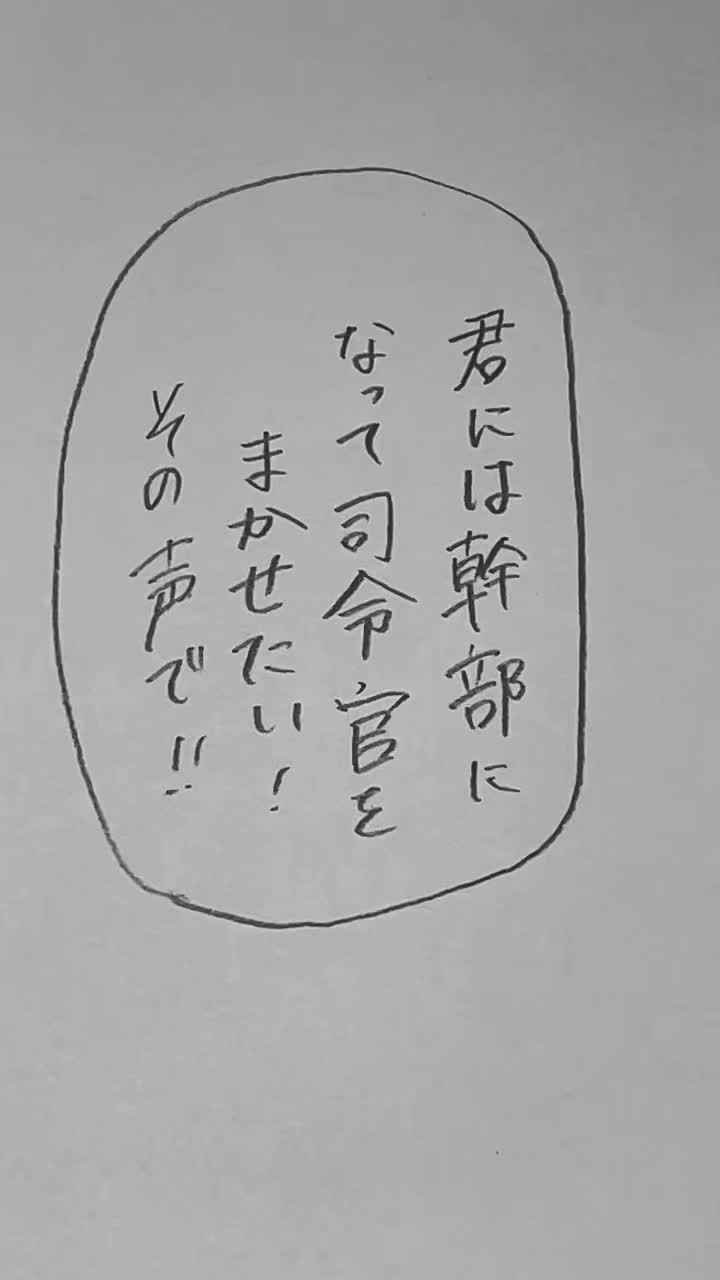 君には幹部に
なって司令官を
まかせたい!
その声で!!